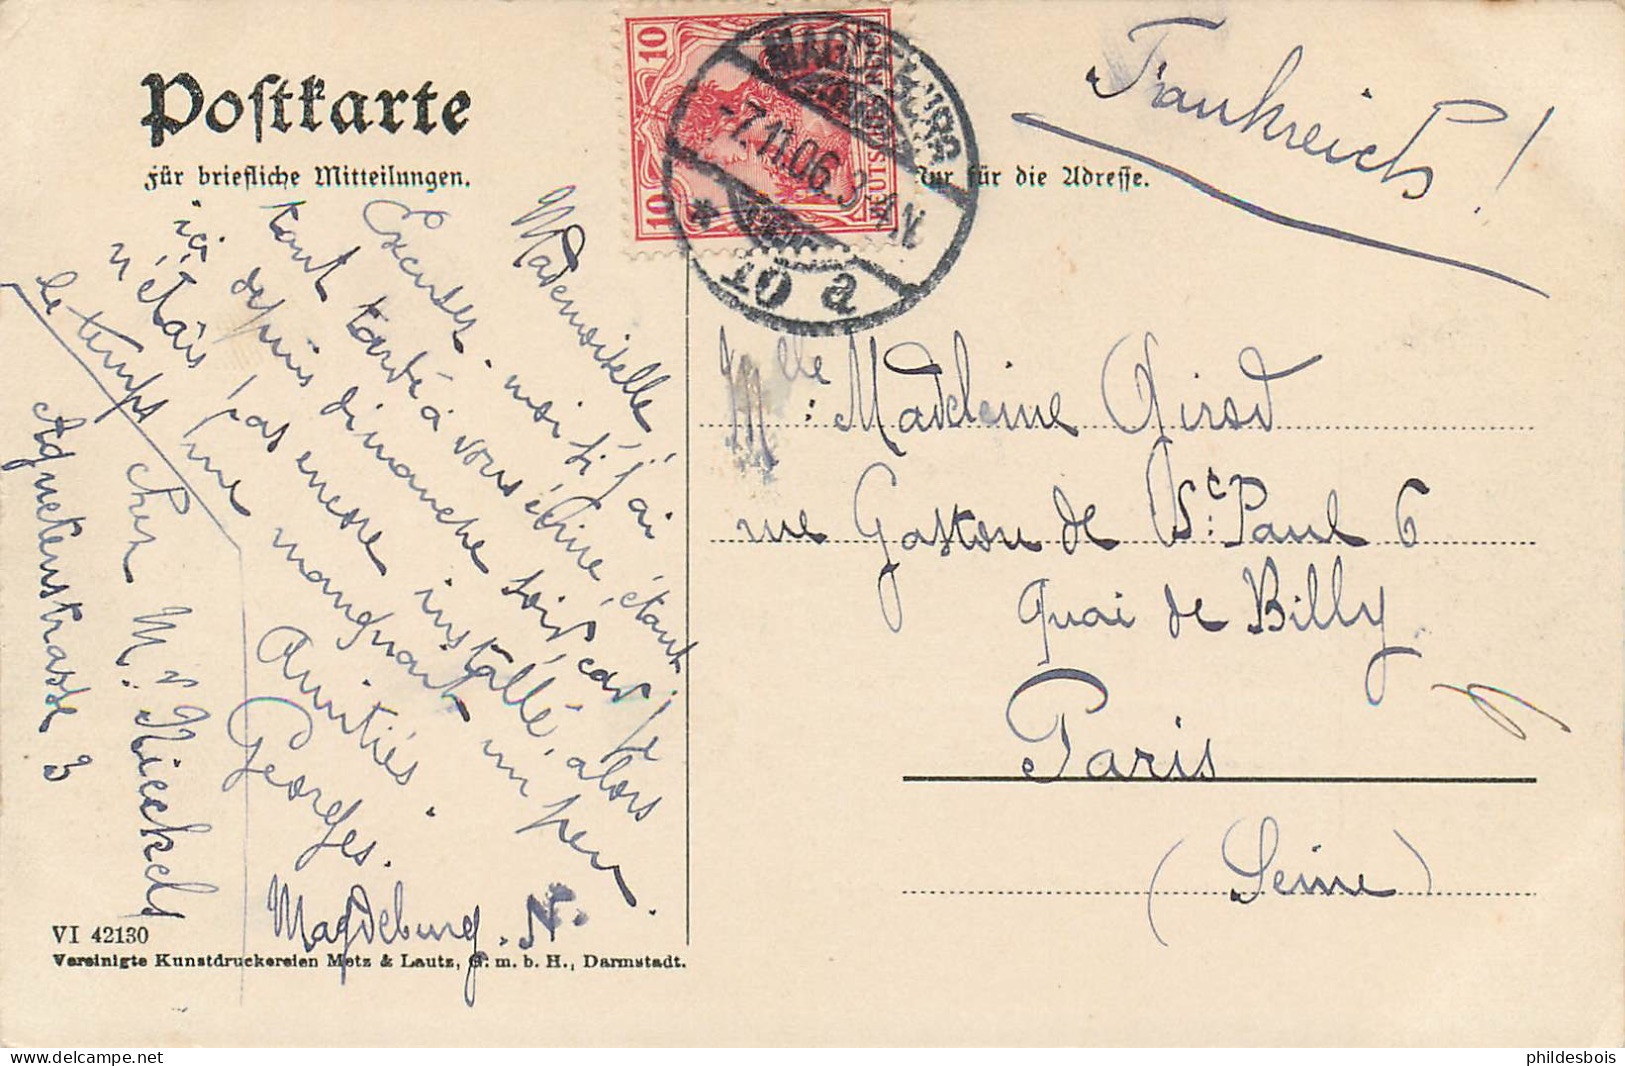 Postkarte
Für briefliche Mitteilungen.
Nur für die Adresse.
10
10
DEUTSCHES REICH
MAGDEBURG
-7.11.06. 3-4N.
* 10 a
Frankreich !
Mademoiselle,
Excusez-moi si j'ai
tant tardé à vous écrire, étant
ici depuis dimanche soir car je
n'étais pas encore installé, alors
le temps me manquait un peu.
Amitiés.
Georges.
chez Mr Nieckels
Agnetenstrasse 3
Magdeburg. N.
Mlle: Madeleine
rue Gaston de St: Paul 6
Quai de Billy
Paris
(Seine)
VI 42130
Vereinigte Kunstdruckereien Metz & Lautz, G. m. b. H., Darmstadt.
phildesbois